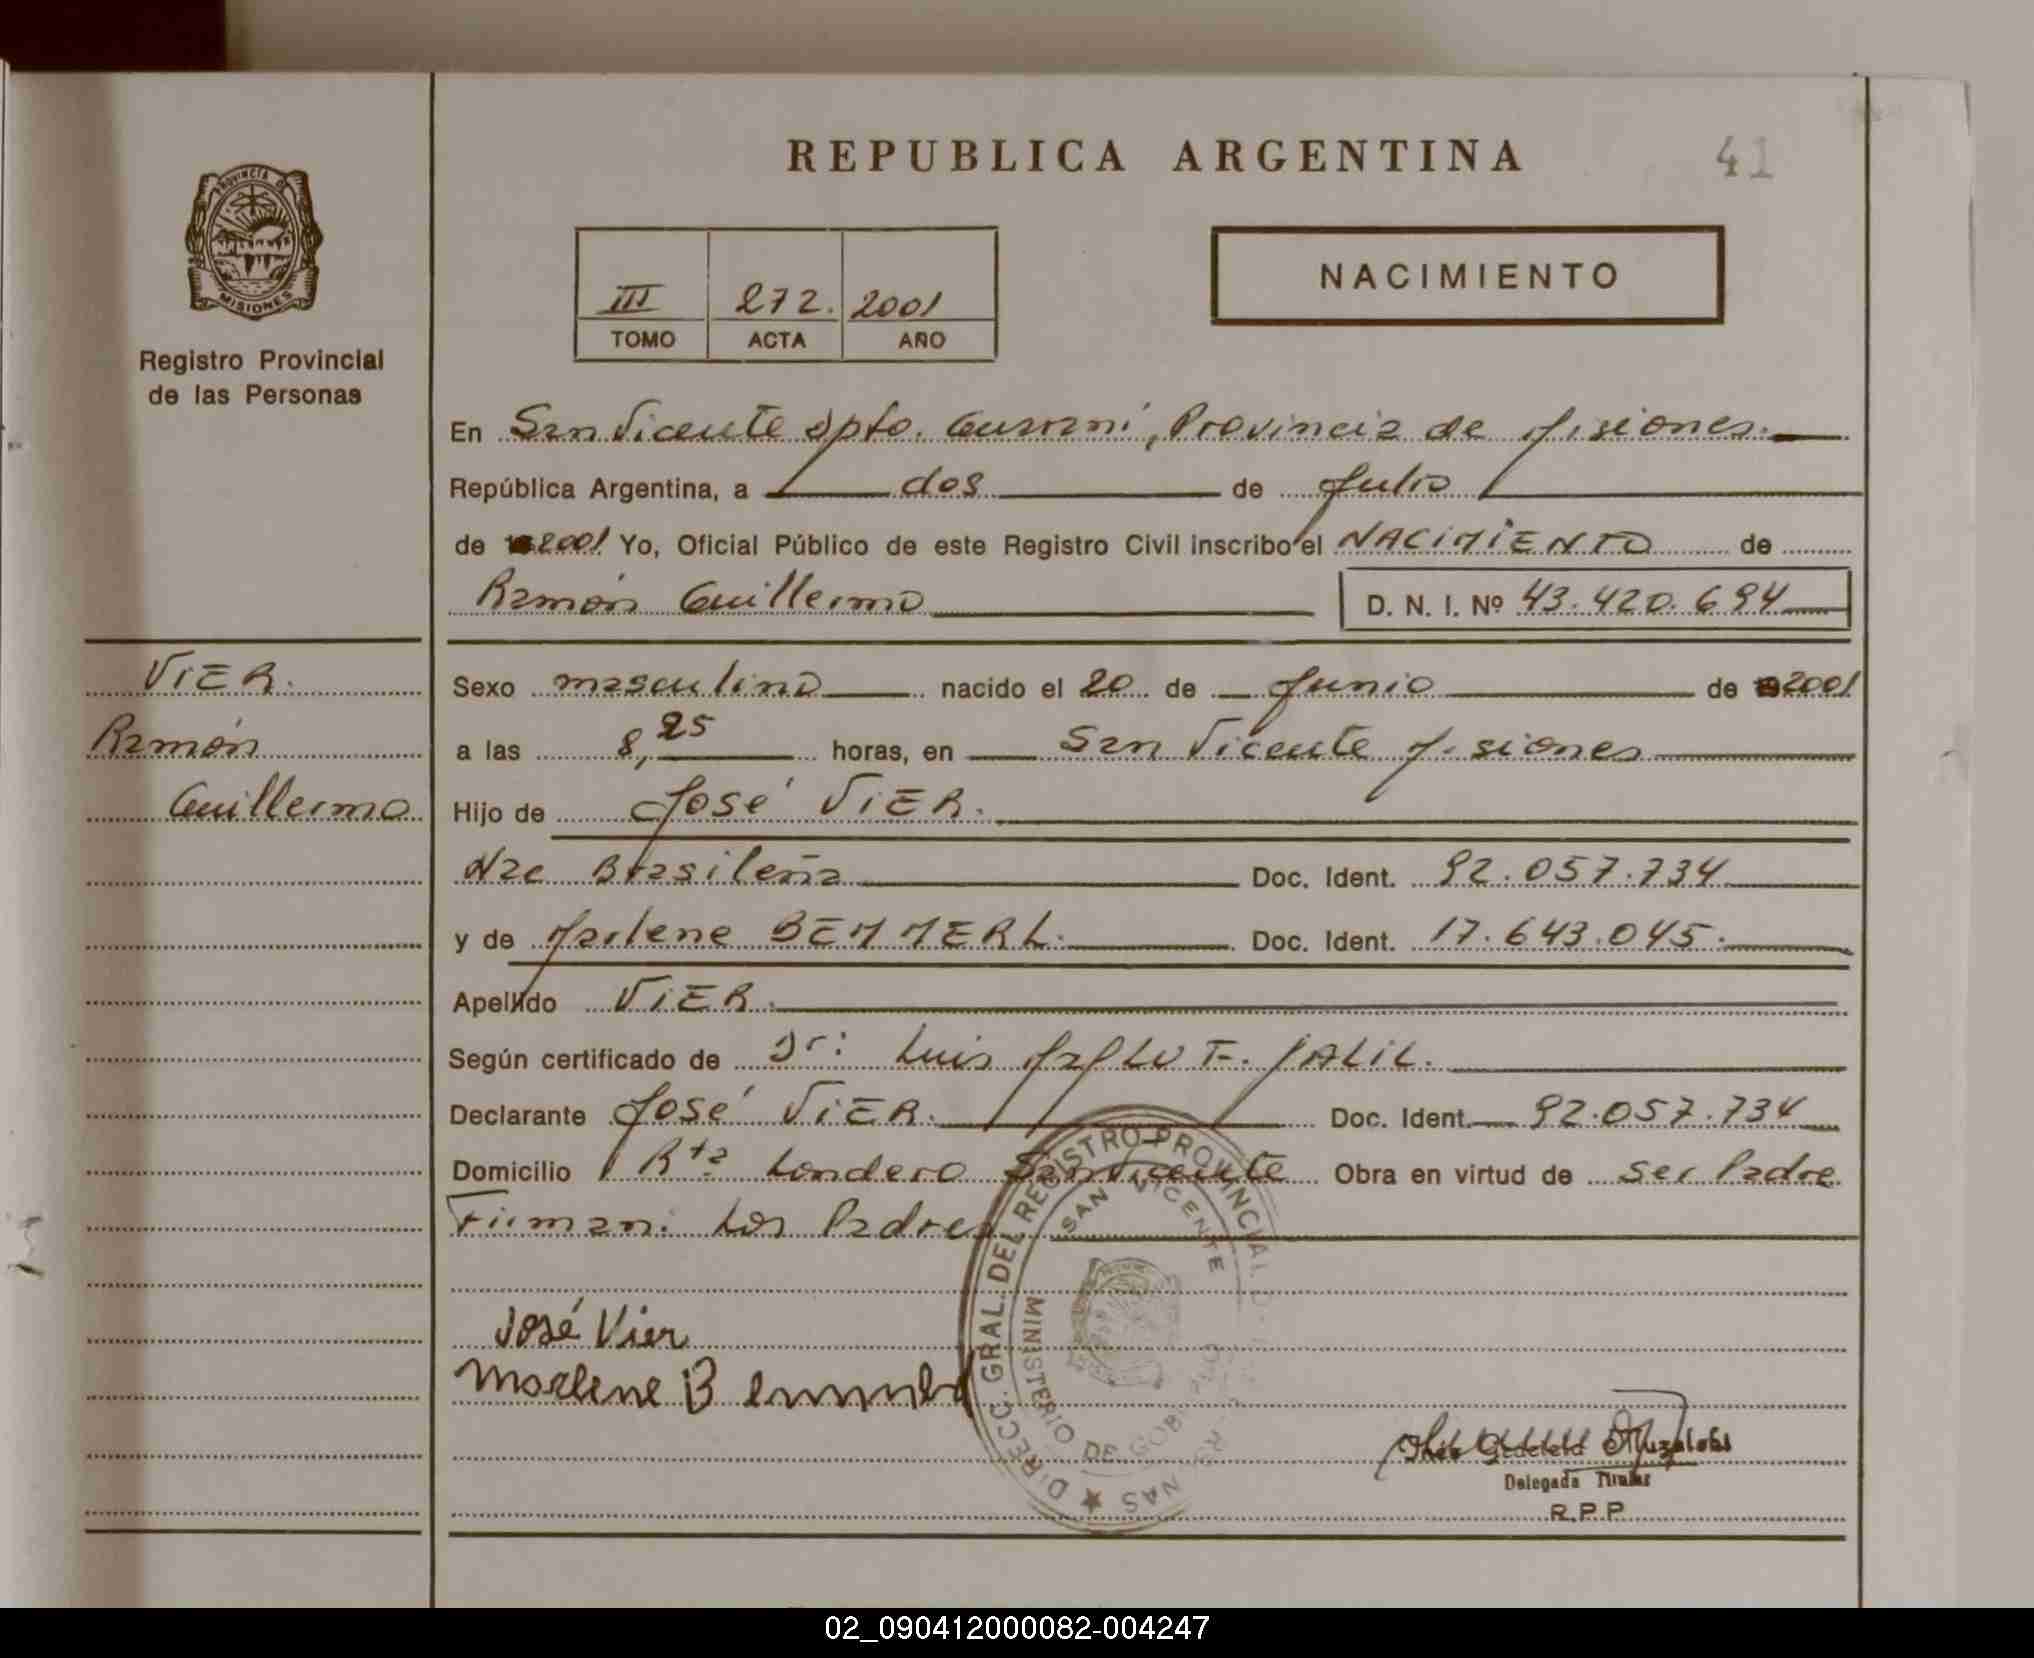 REPUBLICA ARGENTINA
41
PROVINCIA DE
MISIONES
Registro Provincial
de las Personas
III 272. 2001
TOMO ACTA AÑO
NACIMIENTO
En San Vicente Dpto. Guaraní, Provincia de Misiones.
República Argentina, a dos de Julio
de 2001 Yo, Oficial Público de este Registro Civil inscribo el NACIMIENTO de
Ramón Guillermo D. N. I. Nº 43.420.694
VIER.
Ramón
Guillermo
Sexo masculino nacido el 20 de Junio de 2001
a las 8,25 horas, en San Vicente Misiones
Hijo de José VIER.
Nac Brasileña Doc. Ident. 92.057.734
y de Marlene BEMMERL. Doc. Ident. 17.643.045.
Apellido VIER.
Según certificado de Dr: Luis F. JALIL.
Declarante José VIER. Doc. Ident. 92.057.734
Domicilio Rta Londero San Vicente Obra en virtud de ser Padre
Firman: Los Padres
José Vier
Marlene B
DIRECC. GRAL. DEL REGISTRO PROVINCIAL
SAN VICENTE
MINISTERIO DE
Delegada Titular
R.P.P
02_090412000082-004247